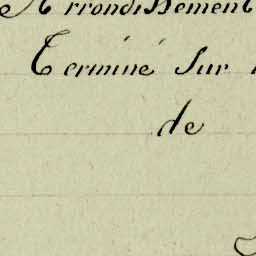 Arrondissement
Terminé sur
de